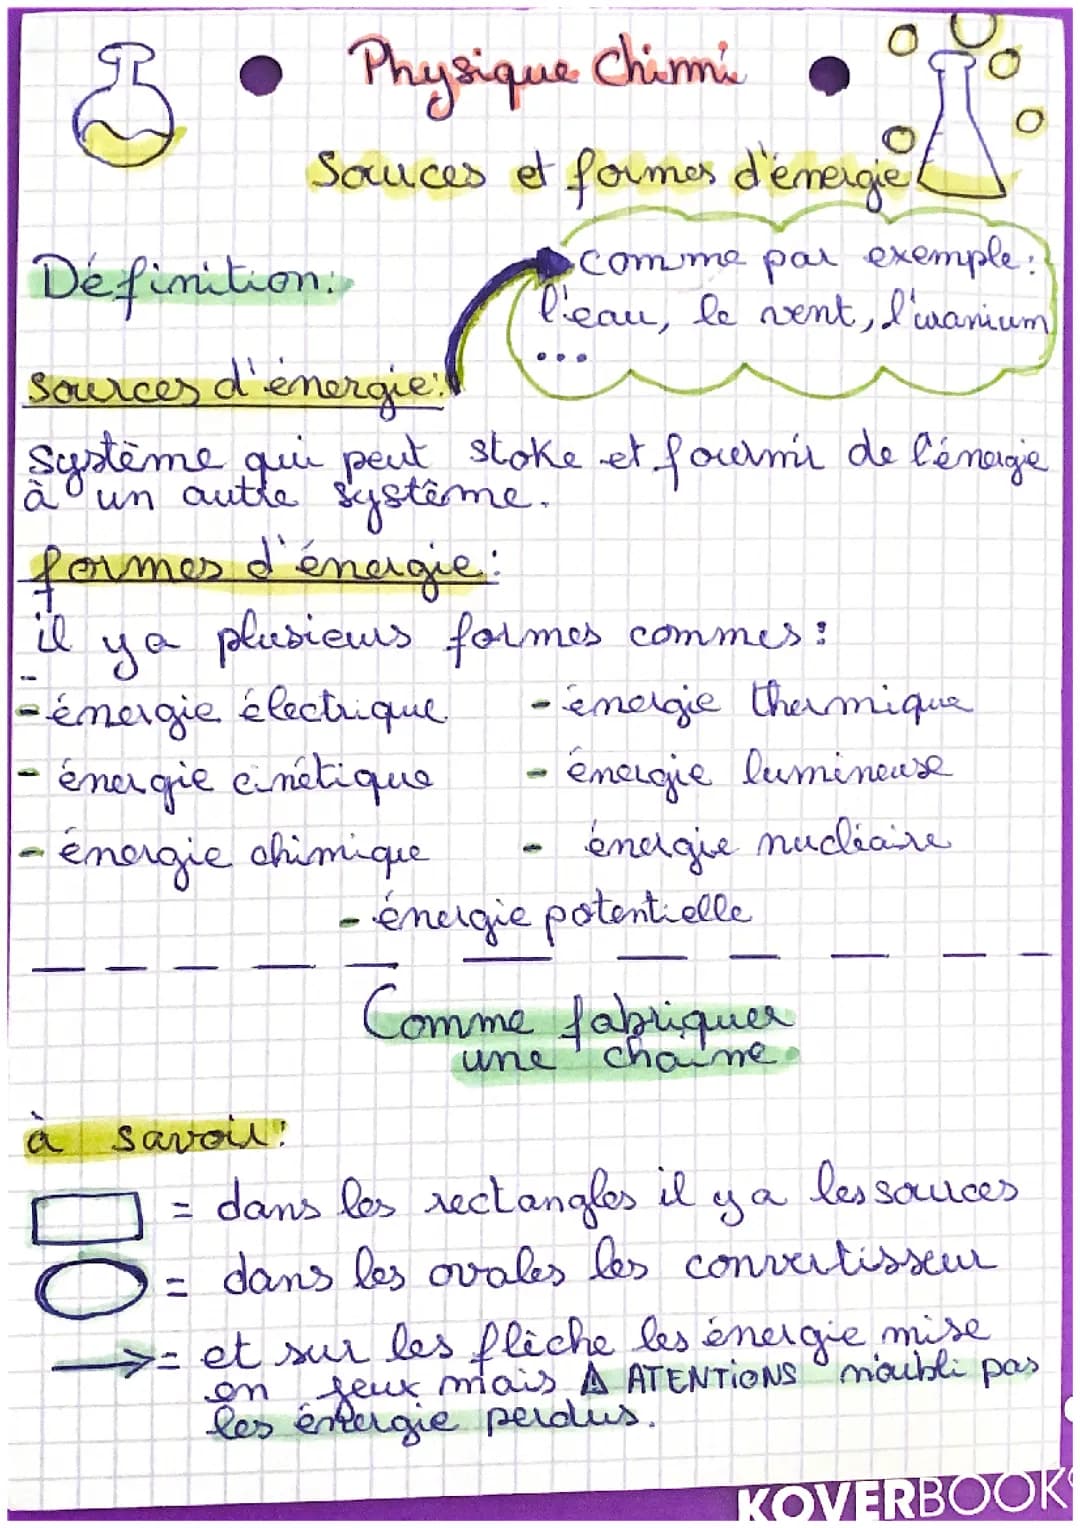 Physique Chimi
Sources et formes d'énergie
Définition:
comme par exemple:
l'eau, le vent, l'uranium
...
sources d'énergie:
système qui peut stoke et fournir de l'énergie
à un autre système.
formes d'énergie:
il y a plusieurs formes commes:
- énergie électrique
- énergie thermique
- énergie cinétique
- énergie lumineuse
- énergie chimique
- énergie nucléaire
- énergie potentielle
Comme fabriquer
une chaine.
à savoir:
= dans les rectangles il y a les sources
= dans les ovales les convertisseur
= et sur les flèche les énergie mise
en jeux mais ⚠ ATENTIONS n'oubli pas
les énergie perdus.
KOVERBOOK